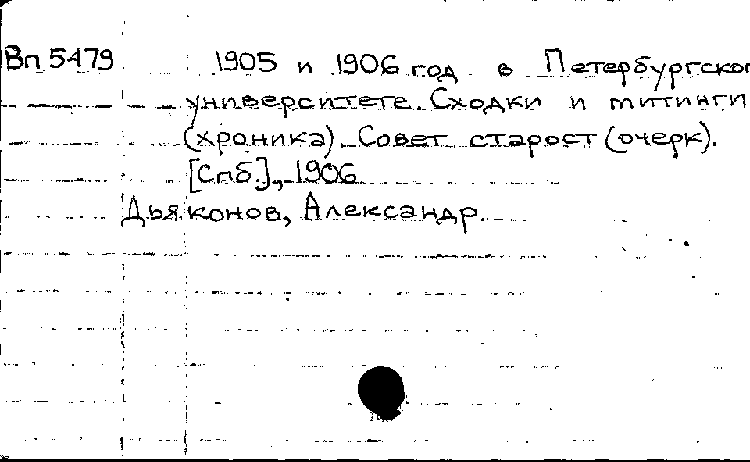 Вп 5479 1905 и 1906 год в Петербургско
университете. Сходки и митинги
(хроника). Совет старост (очерк).
[Спб.], 1906
Дьяконов, Александр.